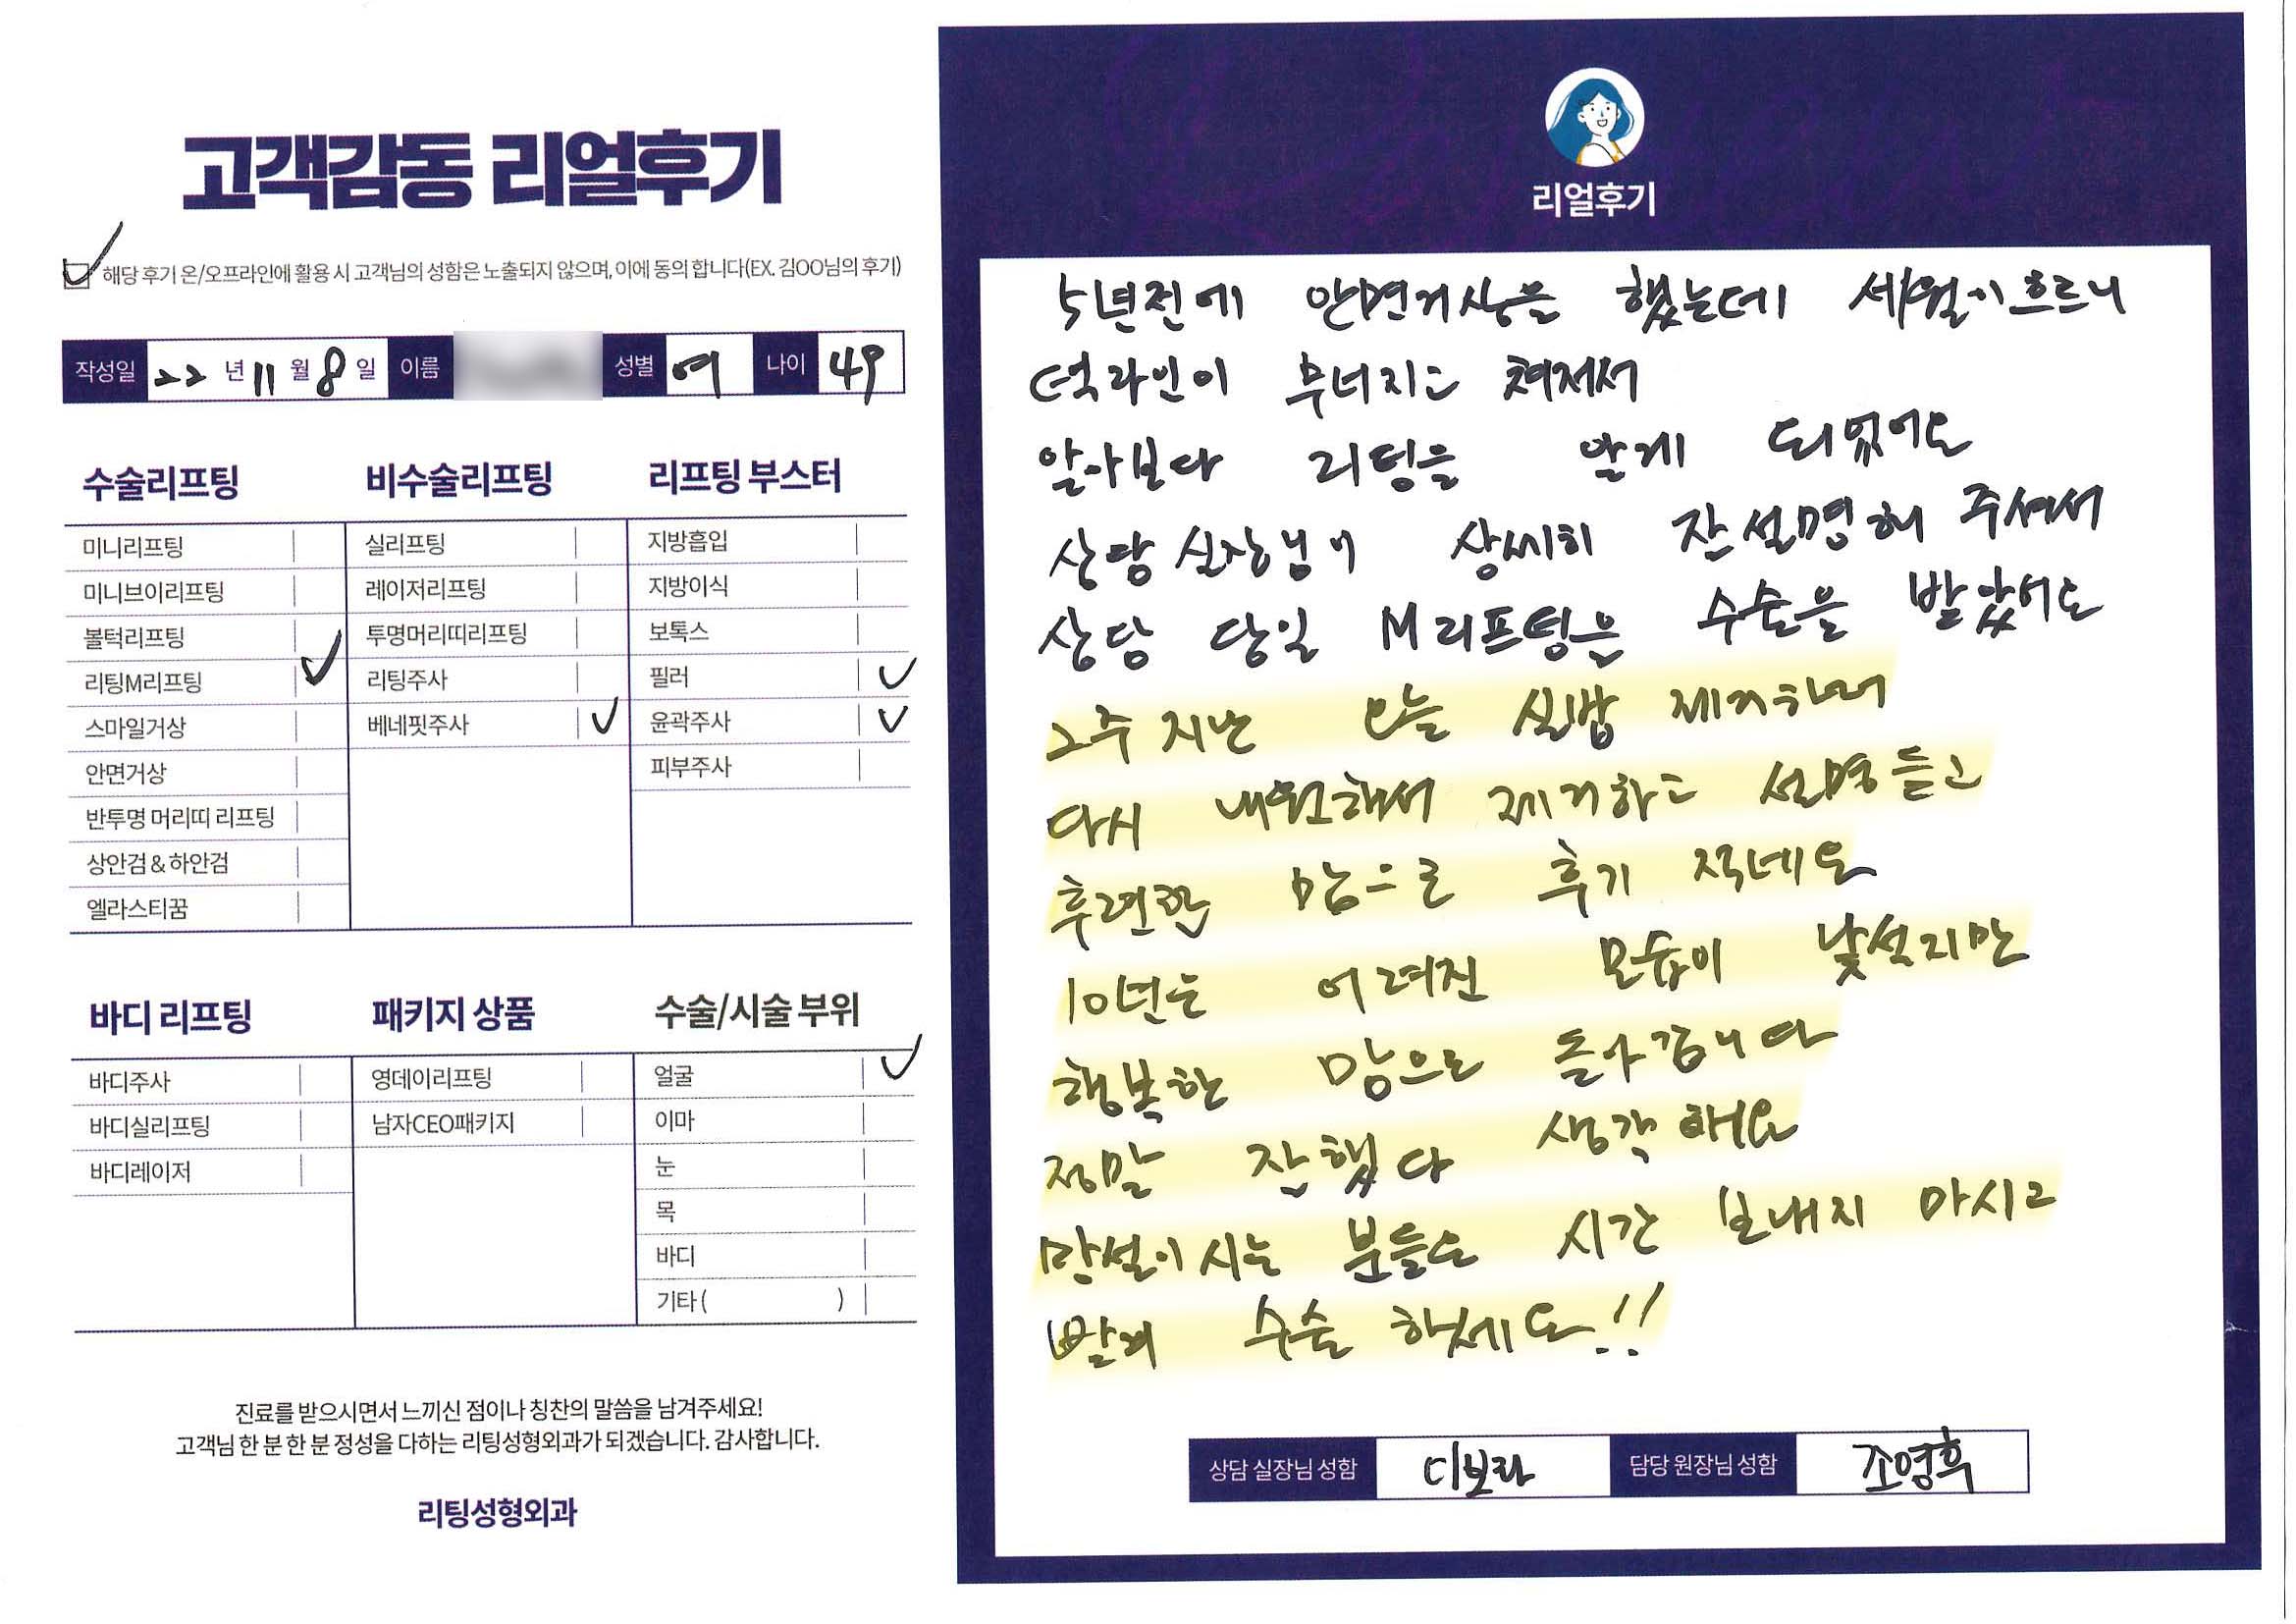 고객감동 리얼후기
해당 후기 온/오프라인에 활용 시 고객님의 성함은 노출되지 않으며, 이에 동의 합니다(EX. 김OO님의 후기)
작성일 22 년 11 월 8 일 이름 성별 여 나이 49
수술리프팅
미니리프팅
미니브이리프팅
볼턱리프팅
리팅M리프팅
스마일거상
안면거상
반투명 머리띠 리프팅
상안검 & 하안검
엘라스티꿈
비수술리프팅
실리프팅
레이저리프팅
투명머리띠리프팅
리팅주사
베네핏주사
리프팅 부스터
지방흡입
지방이식
보톡스
필러
윤곽주사
피부주사
바디 리프팅
바디주사
바디실리프팅
바디레이저
패키지 상품
영데이리프팅
남자CEO패키지
수술/시술 부위
얼굴
이마
눈
목
바디
기타 ( )
진료를 받으시면서 느끼신 점이나 칭찬의 말씀을 남겨주세요!
고객님 한 분 한 분 정성을 다하는 리팅성형외과가 되겠습니다. 감사합니다.
리팅성형외과
리얼후기
5년전에 안면거상을 했는데 세월이흐르니
턱라인이 무너지고 쳐져서
알아보다 리팅을 알게 되었어요
상담실장님이 상세히 잘 설명해 주셔서
상담 당일 M리프팅을 수술을 받았어요
2주 지난 오늘 실밥 제거하러
다시 내원해서 제거하고 설명듣고
후련한 맘으로 후기 적네요
10년은 어려진 모습이 낯설지만
행복한 맘으로 돌아갑니다
정말 잘했다 생각해요
망설이시는 분들도 시간 보내지 마시고
빨리 수술 하세요!!
상담 실장님 성함 디보라 담당 원장님 성함 조영훈